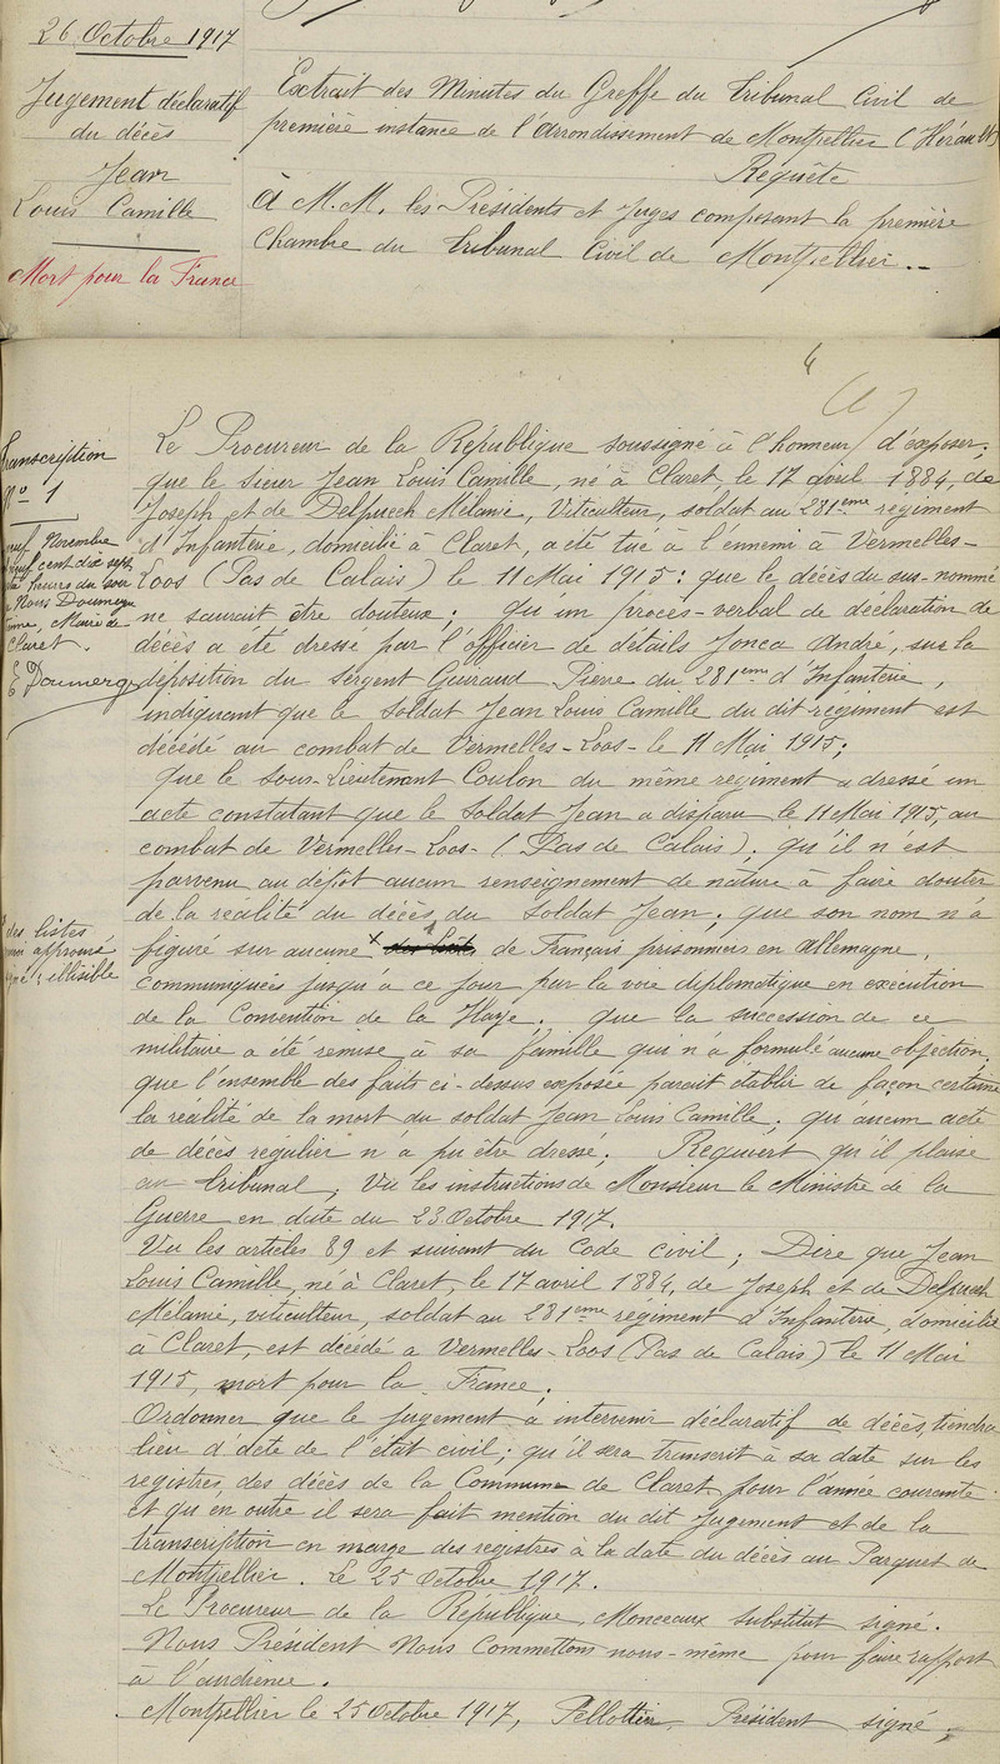 26 Octobre 1917
Jugement déclaratif
du décès
Jean
Louis Camille
Mort pour la France
Extrait des Minutes du Greffe du Tribunal Civil de
première instance de l'Arrondissement de Montpellier (Hérault)
Requête
À M.M. les Présidents et Juges composant la première
Chambre du Tribunal Civil de Montpellier.--
Transcription
No 1
neuf Novembre
neuf cent dix sept
heures du soir
Nous Doumergue
Maire de
Claret.
E Doumergue
Le Procureur de la République soussigné à l'honneur d'exposer;
que le sieur Jean Louis Camille, né à Claret, le 17 avril 1884, de
Joseph et de Delpuech Mélanie, Viticulteur, soldat au 281ème régiment
d'Infanterie, domicilié à Claret, a été tué à l'ennemi à Vermelles-
Loos (Pas de Calais) le 11 Mai 1915: que le décès du sus-nommé
ne saurait être douteux; qu'un procès-verbal de déclaration de
décès a été dressé par l'officier de détails Jonca André, sur la
déposition du Sergent Guiraud Pierre du 281ème d'Infanterie,
indiquant que le soldat Jean Louis Camille du dit régiment est
décédé au combat de Vermelles-Loos- le 11 Mai 1915;
Que le Sous-Lieutenant Coulon du même régiment a dressé un
acte constatant que le Soldat Jean a disparu le 11 Mai 1915, au
combat de Vermelles-Loos- (Pas de Calais); qu'il n'est
parvenu au dépôt aucun renseignement de nature à faire douter
de la réalité du décès du Soldat Jean; que son nom n'a
des listes
approuvé
illisible
figuré sur aucune x des listes de Français prisonniers en Allemagne,
communiquées jusqu'à ce jour par la voie diplomatique en exécution
de la Convention de la Haye; que la succession de ce
militaire a été remise à sa famille qui n'a formulé aucune objection.
que l'ensemble des faits ci-dessus exposée parait établir de façon certaine
la réalité de la mort du soldat Jean Louis Camille; qu'aucun acte
de décès régulier n'a pu être dressé; Requiert qu'il plaise
au Tribunal; Vu les instructions de Monsieur le Ministre de la
Guerre en date du 23 Octobre 1917.
Vu les articles 89 et suivant du Code civil; Dire que Jean
Louis Camille, né à Claret, le 17 avril 1884, de Joseph et de Delpuech
Mélanie, viticulteur, soldat au 281ème régiment d'Infanterie, domicilié
à Claret, est décédé à Vermelles-Loos (Pas de Calais) le 11 Mai
1915, mort pour la France;
Ordonner que le jugement à intervenir déclaratif de décès, tiendra
lieu d'acte de l'état civil; qu'il sera transcrit à sa date sur les
registres des décès de la Commune de Claret pour l'année courante
et qu'en outre il sera fait mention du dit Jugement et de la
transcription en marge des registres à la date du décès au Parquet de
Montpellier. Le 25 Octobre 1917.
Le Procureur de la République, Monceaux Substitut signé.
Nous Président Nous Commettons nous-même pour faire rapport
à l'audience.
Montpellier le 25 Octobre 1917, Pellottier, Président signé;